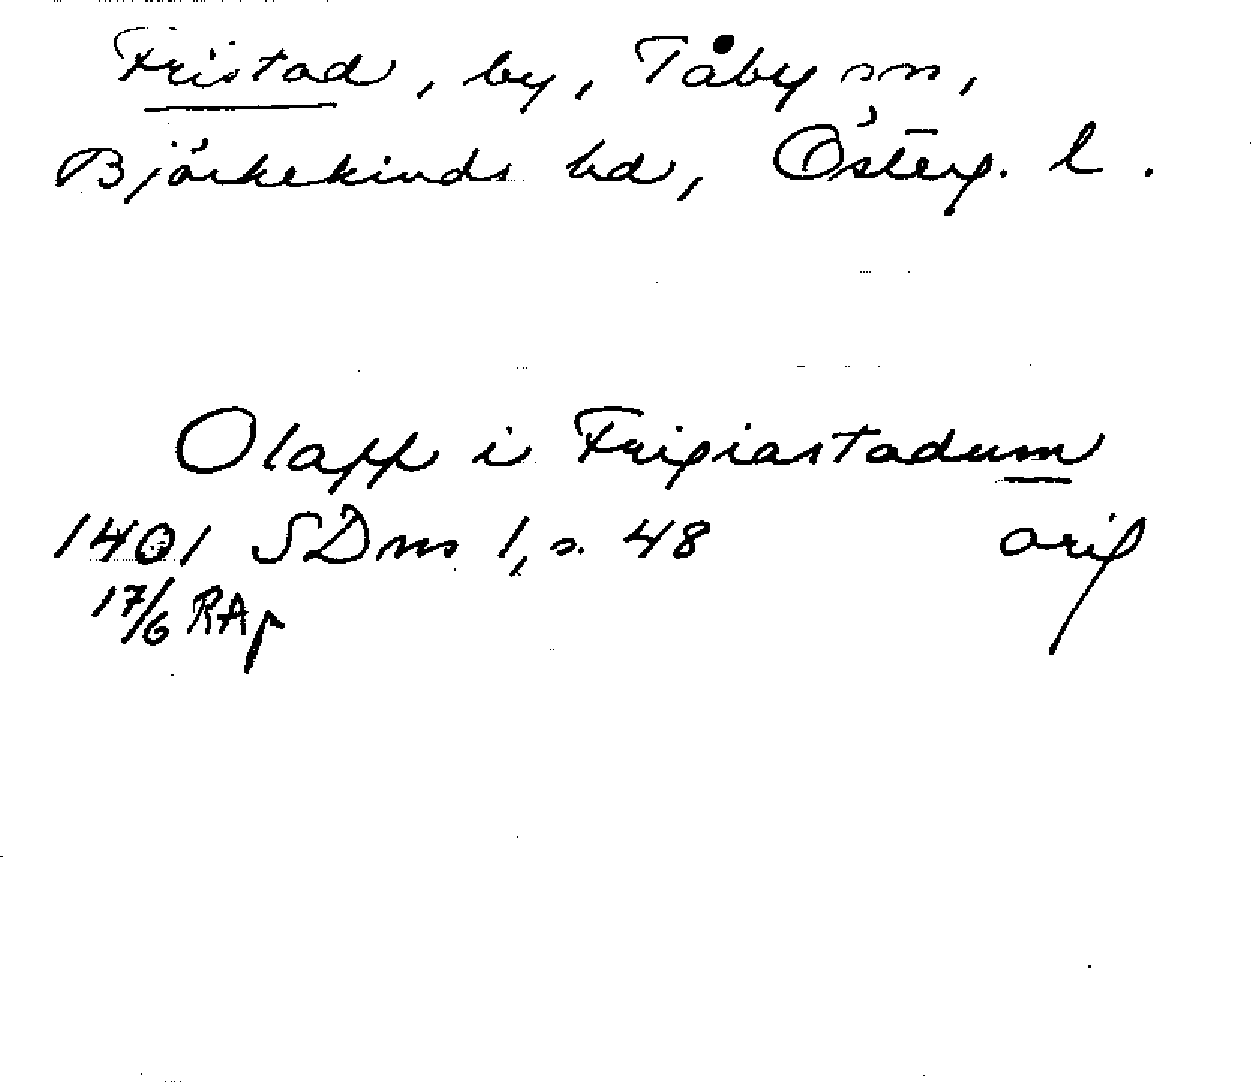 Fristad, by, Tåby sn,
Björkekinds hd, Österg. l.
Olaff i Frigiastadum
1401 SDns 1, s. 48 orig
17/6 RAp